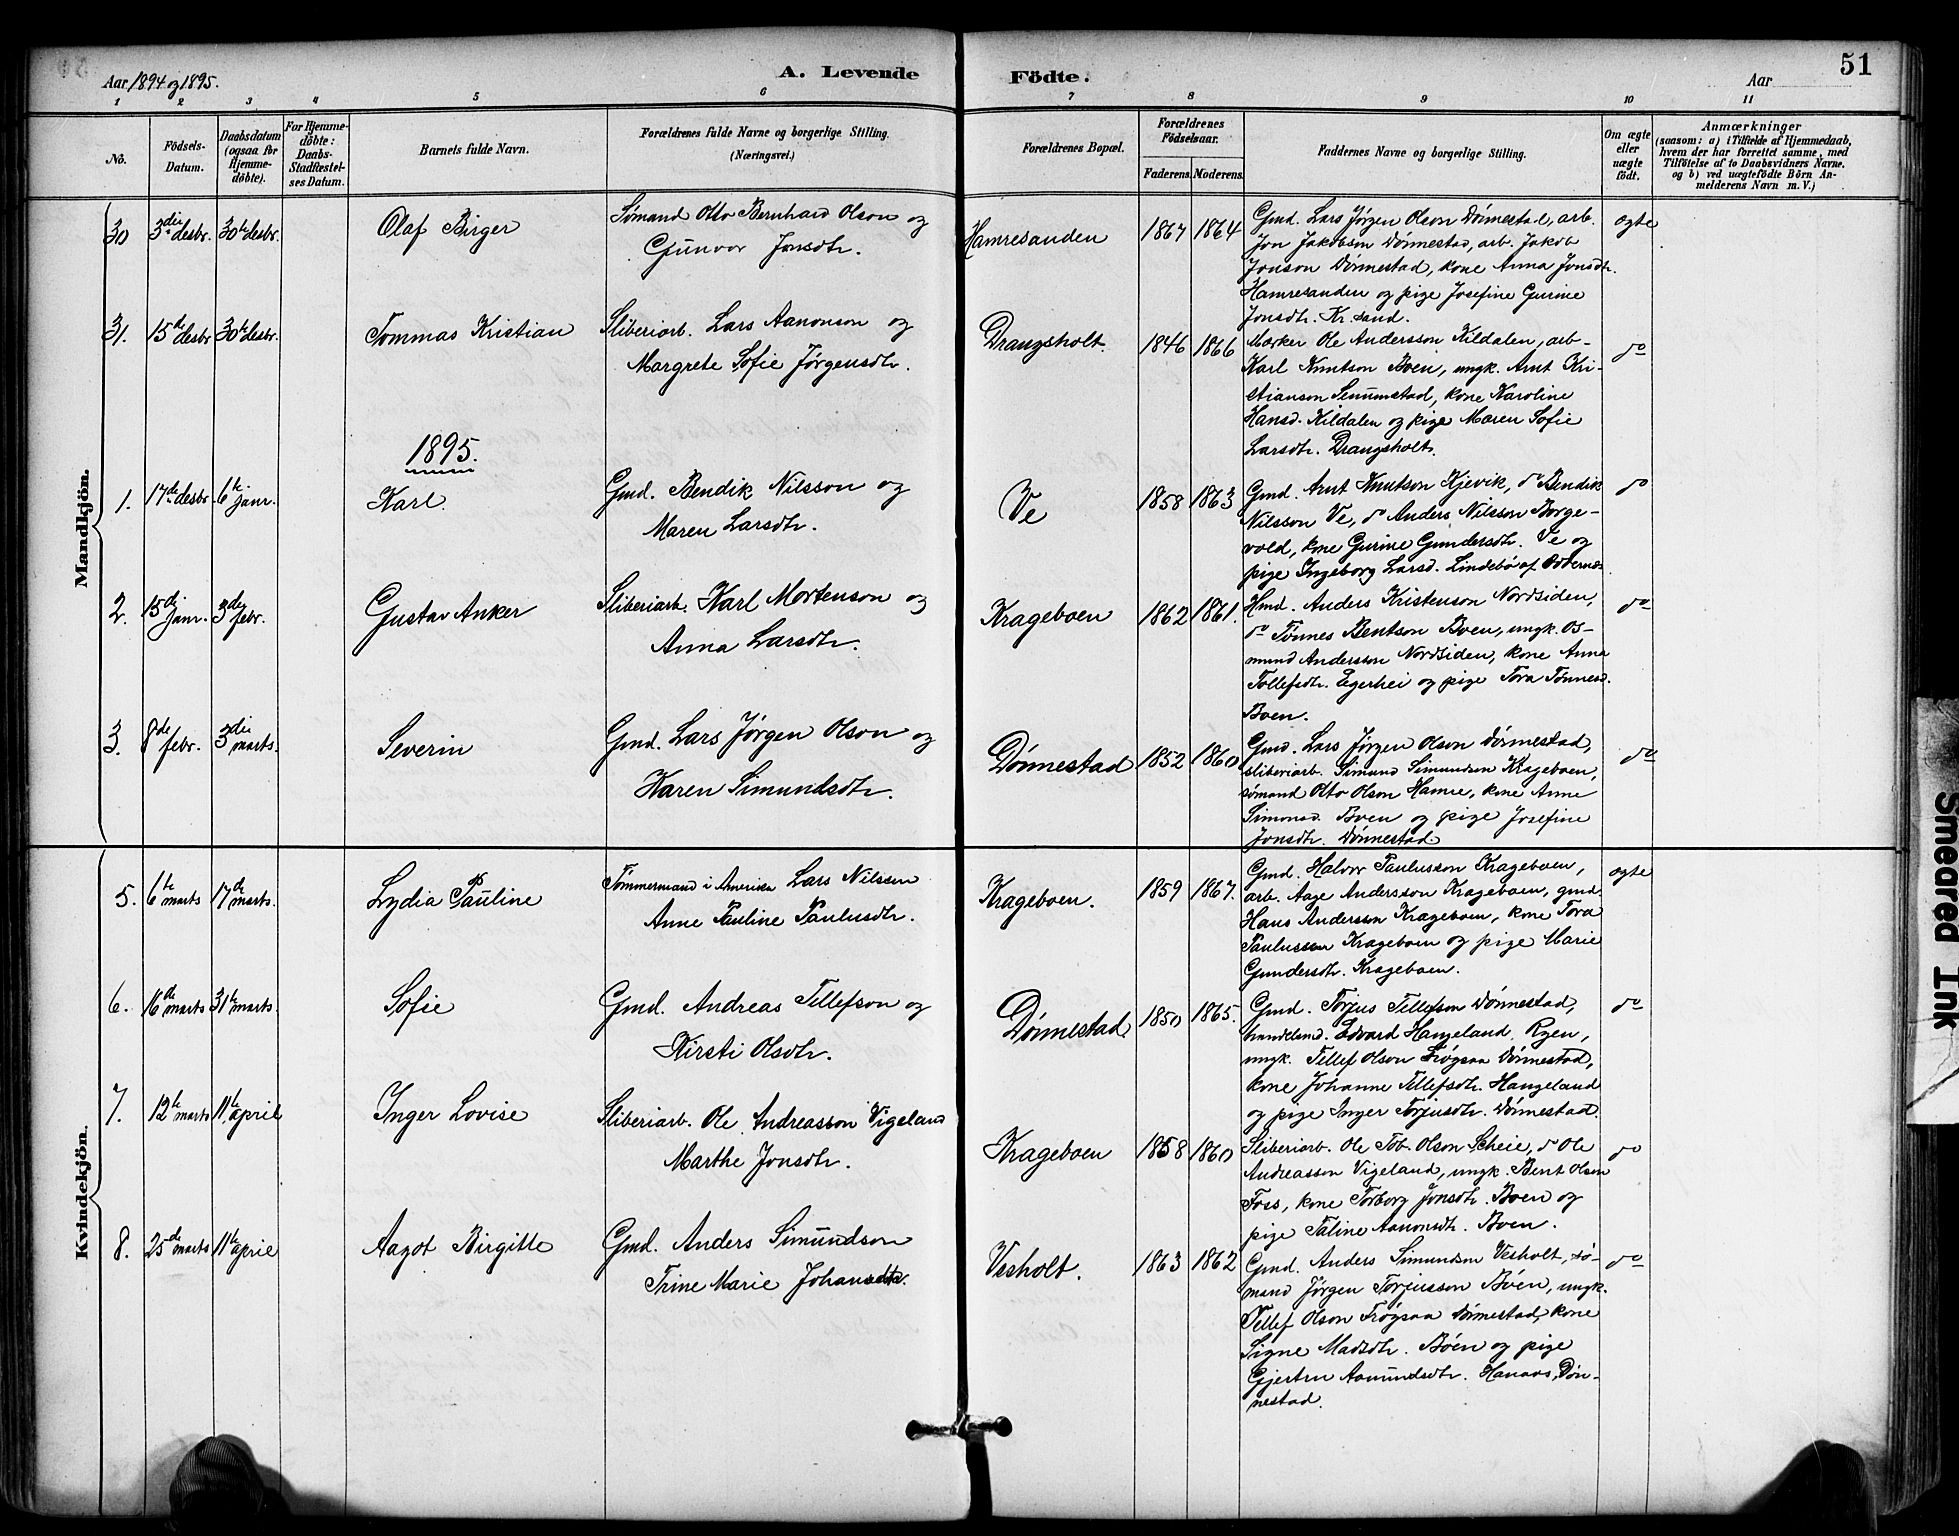 Aar 1894 og 1895.
A. Levende
Födte.
Aar
51
1 2 3 4 5 6 7 8 9 10 11
No.
Födsels-
Datum.
Daabsdatum
(ogsaa for
Hjemme-
döbte).
For Hjemme-
döbte:
Daabs-
Stadfæstel-
ses Datum.
Barnets fulde Navn.
Forældrenes fulde Navne og borgerlige Stilling.
(Næringsvei.)
Forældrenes Bopæl.
Forældrenes
Födselsaar.
Faderens. Moderens.
Faddernes Navne og borgerlige Stilling.
Om ægte
eller
uægte
födt.
Anmærkninger
(saasom: a) i Tilfælde af Hjemmedaab,
hvem der har forrettet samme, med
Tilföielse af to Daabsvidners Navne,
og b) ved uægtefödte Börn An-
melderens Navn m. V.)
Mandkjön.
30 3die desbr. 30te desbr.
Olaf Birger
Sømand Otto Bernhard Olson og
Gunvor Jonsdtr.
Hamresanden
1867 1864
Gmd. Lars Jørgen Olson Dønnestad, arb.
Jon Jakobson Dønnestad, arb. Jakob
Jonson Dønnestad, kone Anna Jonsdtr.
Hamresanden og pige Josefine Gurine
Jonsdtr. Kr.sand.
ogte
31. 15de desbr 30te desbr.
Tommas Kristian
Sliberiarb. Lars Aanonson og
Margrete Sofie Jørgensdtr.
Drangsholt.
1846 1866
Mærker Ole Andersson Kildalen, arb-
Karl Knutson Boen, ungk. Arnt Kri-
stianson Senumstad, kone Karoline
Hansd. Kildalen og pige Maren Sofie
Larsdtr. Drangsholt.
do
1895.
1. 17de desbr 6te janr.
Karl.
Gmd. Bendik Nilsson og
Maren Larsdtr.
Ve
1858 1863
Gmd. Arnt Knutson Kjevik, do Bendik
Nilsson Ve, do Anders Nilsson Borge-
vold, kone Gurine Gundersdtr. Ve og
pige Ingeborg Larsd. Lindebø af Oddernes
do
2. 15de janr. 3die febr.
Gustav Anker
Sliberiarb. Karl Mortenson og
Anna Larsdtr.
Krageboen
1862 1861.
Hmd. Anders Kristenson Nordsiden,
do Tønnes Bentson Boen, ungk. Os-
mund Andersson Nordsiden, kone Anna
Tollefsdtr. Egerhei og pige Tora Tønnesd.
Boen.
do
3. 8de febr. 3die marts.
Severin
Gmd. Lars Jørgen Olson og
Karen Simundsdtr.
Dønnestad
1852 1860
Gmd. Lars Jørgen Olson Dønnestad,
sliberiarb. Simund Simundson Krageboen,
sømand Otto Olson Hamre, kone Anne
Simonsd. Boen og pige Josefine
Jonsdtr. Dønnestad
do
Kvindekjön.
5. 6te marts 17de marts.
Lydia Pauline
Tømmermand i Amerika Lars Nilsson
Anne Pauline Paulusdtr.
Krageboen.
1859 1867.
Gmd. Halvor Paulusson Krageboen,
arb. Aage Andersson Krageboen, gmd
Hans Andersson Krageboen, kone Tora
Paulusson Krageboen og pige Marie
Gundersdtr. Krageboen.
ogte
6. 16de marts 31te marts.
Sofie
Gmd. Andreas Tellefson og
Kirsti Olsdtr.
Dønnestad
1850 1865.
Gmd. Torjus Tellefson Dønnestad,
handelsmd. Edvard Hangeland, Ryen,
ungk. Tellef Olson Frøgsaa Dønnestad,
kone Johanne Tellefsdtr. Hangeland
og pige Inger Torjusdtr. Dønnestad.
do
7. 12te marts 11te april
Inger Lovise
Sliberiarb. Ole Andreasson Vigeland
Marthe Jonsdtr.
Krageboen
1858 1860
Sliberiarb. Ole Tob. Olson Scheie, do Ole
Andreasson Vigeland, ungk. Bent Olson
Foss, kone Torborg Jonsdtr. Boen og
pige Taline Aanonsdtr. Boen.
do
8. 25de marts 11te april
Aagot Birgitte
Gmd. Anders Simundson
Trine Marie Johansdtr.
Vesholt.
1863 1862
Gmd. Anders Simundson Vesholt, sø-
mand Jørgen Torjusson Boen, ungk.
Tellef Olson Frøgsaa Dønnestad, kone
Signe Madsdtr. Boen og pige
Gjertru Aamundsdtr. Hanaas, Døn-
nestad.
do
Smeared Ink